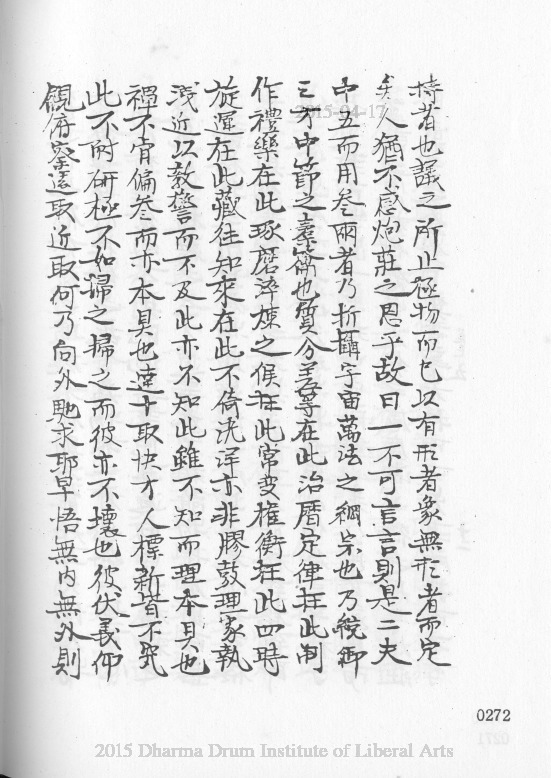 持者也議之所止極物而已以有形者象無形者而定
矣人猶不感炮莊之恩乎故曰一不可言言則是二夫
中五而用叁兩者乃折攝宇宙萬法之綱宗也乃統御
三才中節之橐籥也質分差等在此治曆定律在此制
作禮樂在此琢磨淬煉之候在此常變權衡在此四時
旋運在此藏往知來在此不倚洸洋亦非膠鼓理家執
淺近以教警而不及此亦不知此雖不知而理本具也
禪不肯偏叁而亦本具也達士取快才人標新皆不究
此不耐研極不如掃之掃之而彼亦不壞也彼伏羲仰
觀俯察遠取近取何乃向外馳求耶早悟無內無外則
2015-04-17
0272
2015 Dharma Drum Institute of Liberal Arts